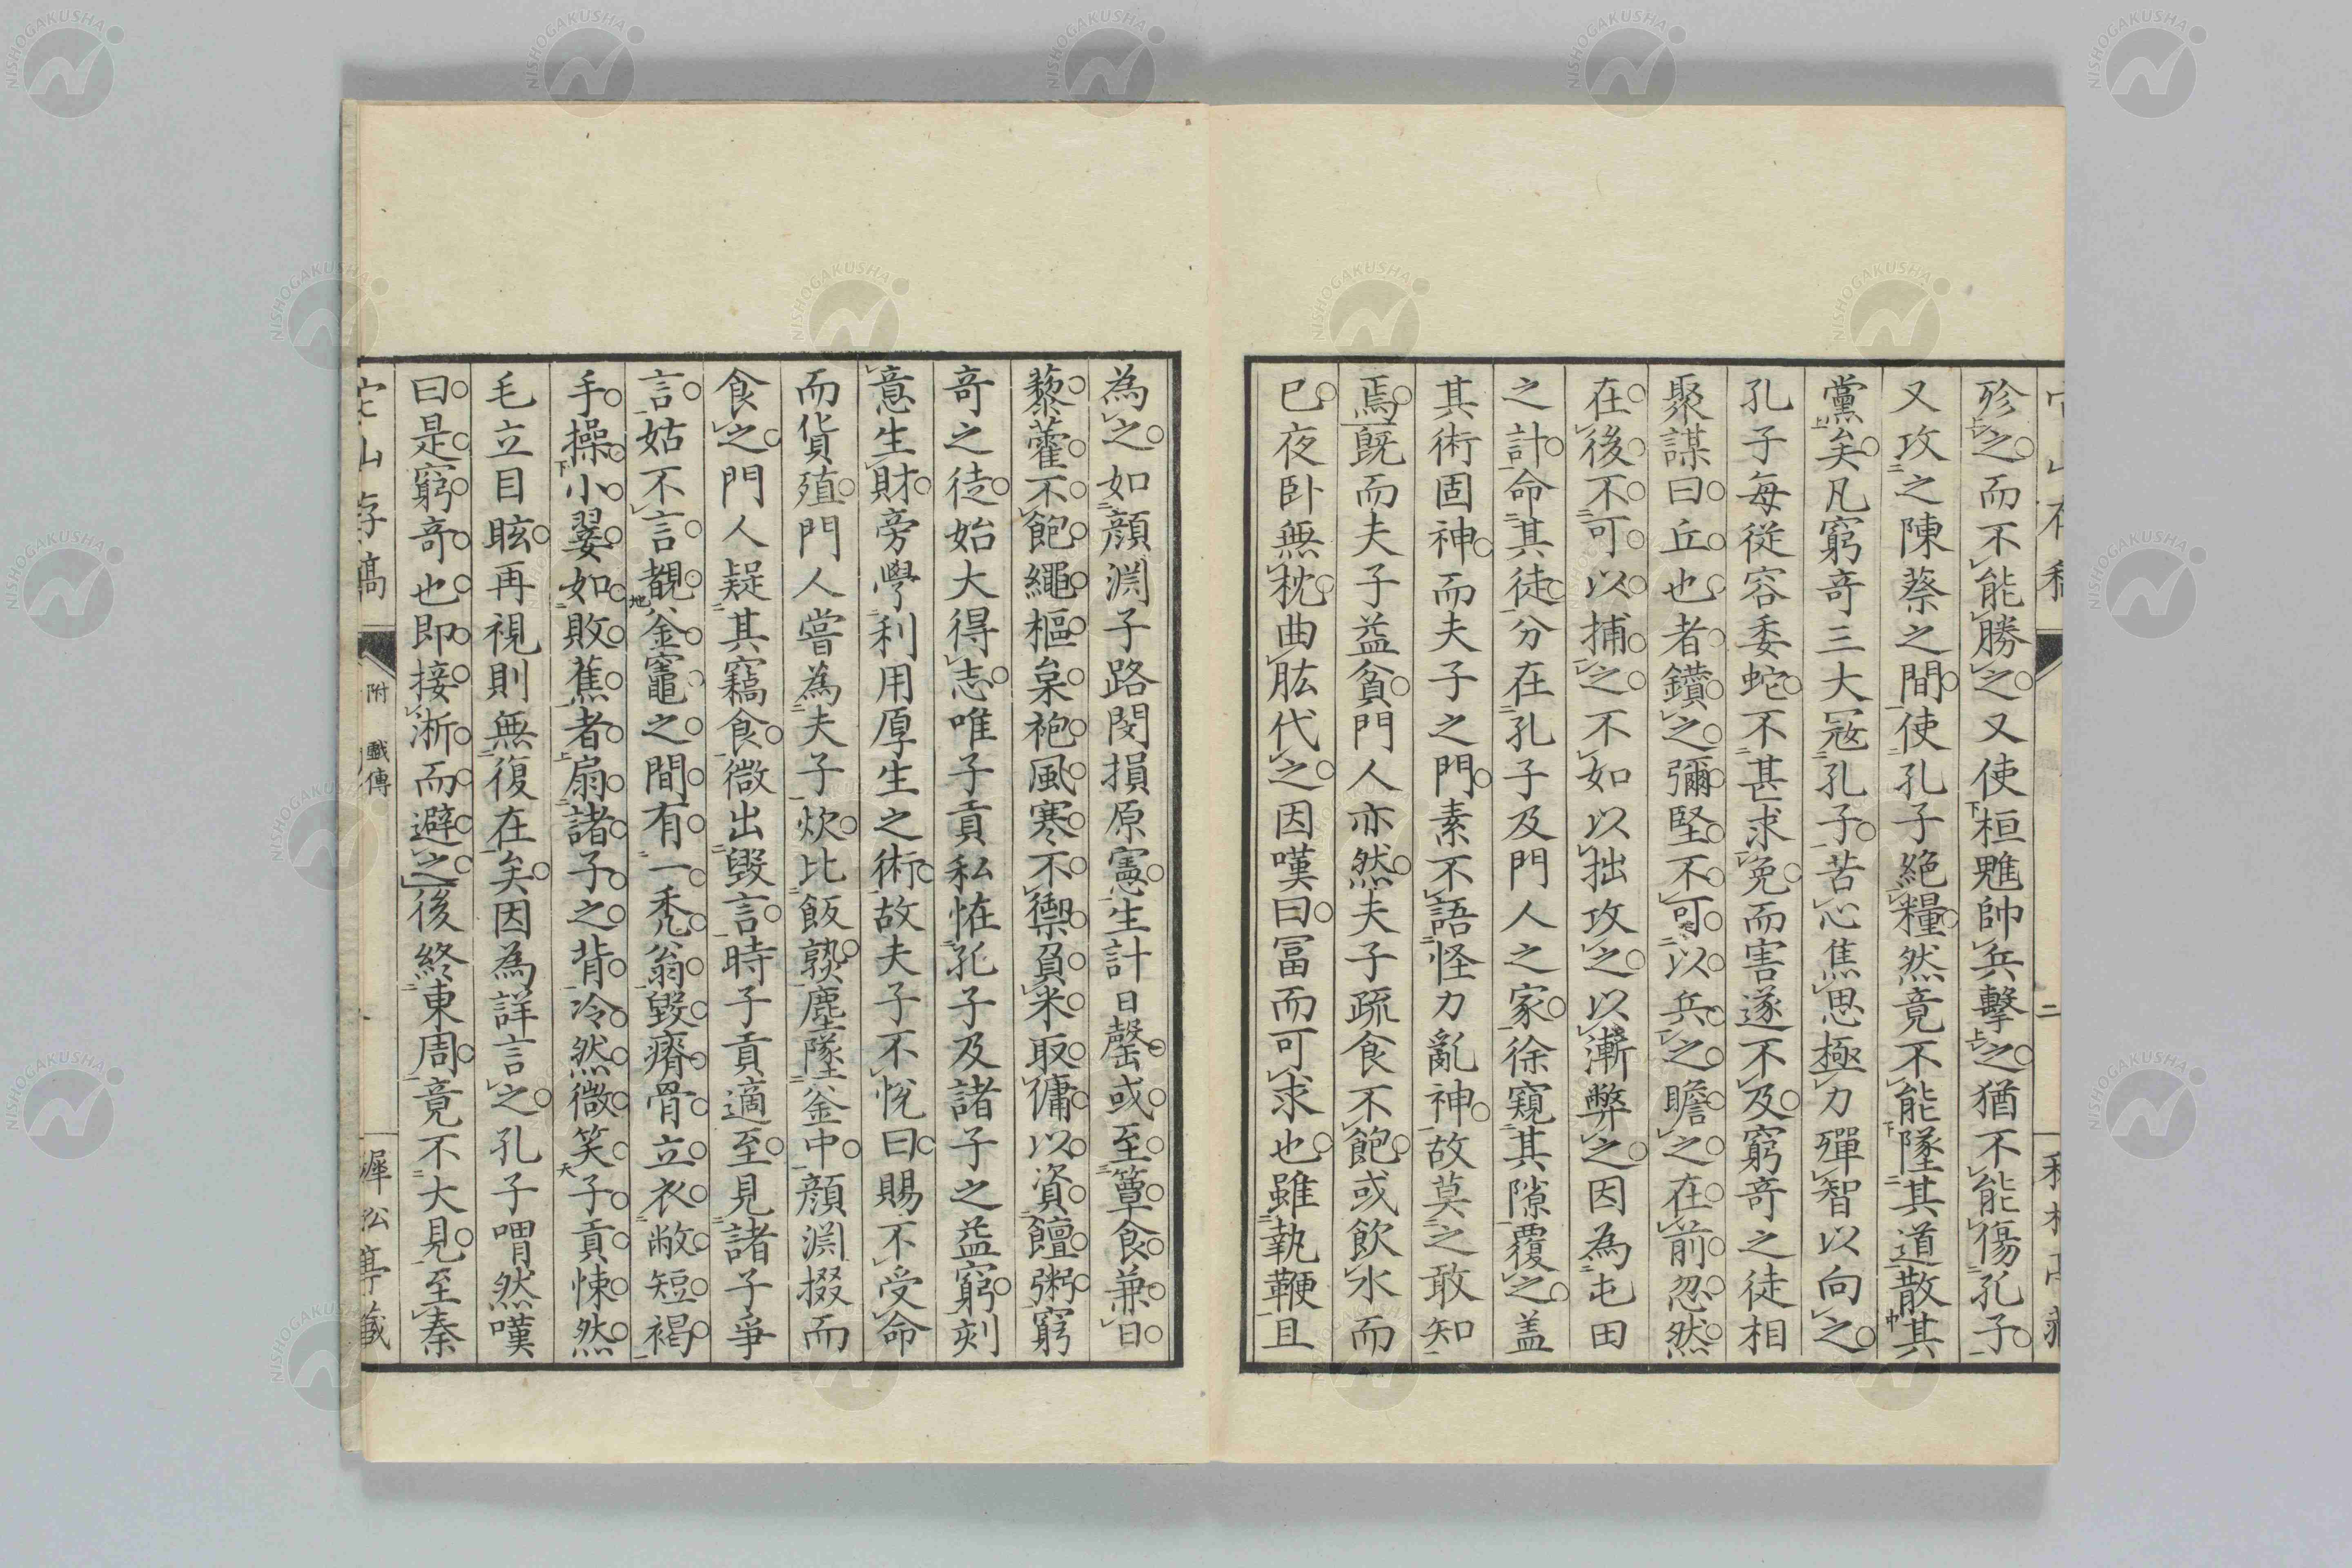 殄之而不能勝之又使桓魋帥兵擊之猶不能傷孔子
又攻之陳蔡之間使孔子絕糧然竟不能墜其道散其
黨矣凡窮奇三大冦孔子苦心焦思極力殫智以向之
孔子每從容委蛇不甚求免而害遂不及窮奇之徒相
聚謀曰丘也者鑽之彌堅不可以兵之瞻之在前忽然
在後不可以捕之不如以拙攻之以漸弊之因為屯田
之計命其徒分在孔子及門人之家徐窺其隙覆之盖
其術固神而夫子之門素不語怪力亂神故莫之敢知
焉既而夫子益貧門人亦然夫子疏食不飽或飲水而
已夜臥無枕曲肱代之因嘆曰冨而可求也雖執鞭且
為之如顏淵子路閔損原憲生計日罄或至簞食兼日
藜藿不飽繩樞枲袍風寒不禦負米取傭以資饘粥窮
奇之徒始大得志唯子貢私恠孔子及諸子之益窮刻
意生財旁學利用厚生之術故夫子不悅曰賜不受命
而貨殖門人嘗為夫子炊比飯熟塵墜釜中顏淵掇而
食之門人疑其竊食微出毀言時子貢適至見諸子爭
言姑不言覩釜竈之間有一禿翁毀瘠骨立衣敝短褐
手操小翣如敗蕉者扇諸子之背冷然微笑子貢悚然
毛立目眩再視則無復在矣因為詳言之孔子喟然嘆
曰是窮奇也即接淅而避之後終東周竟不大見至秦
宕山存稿
附 戲傳
犀松亭藏
二
NISHOGAKUSHA